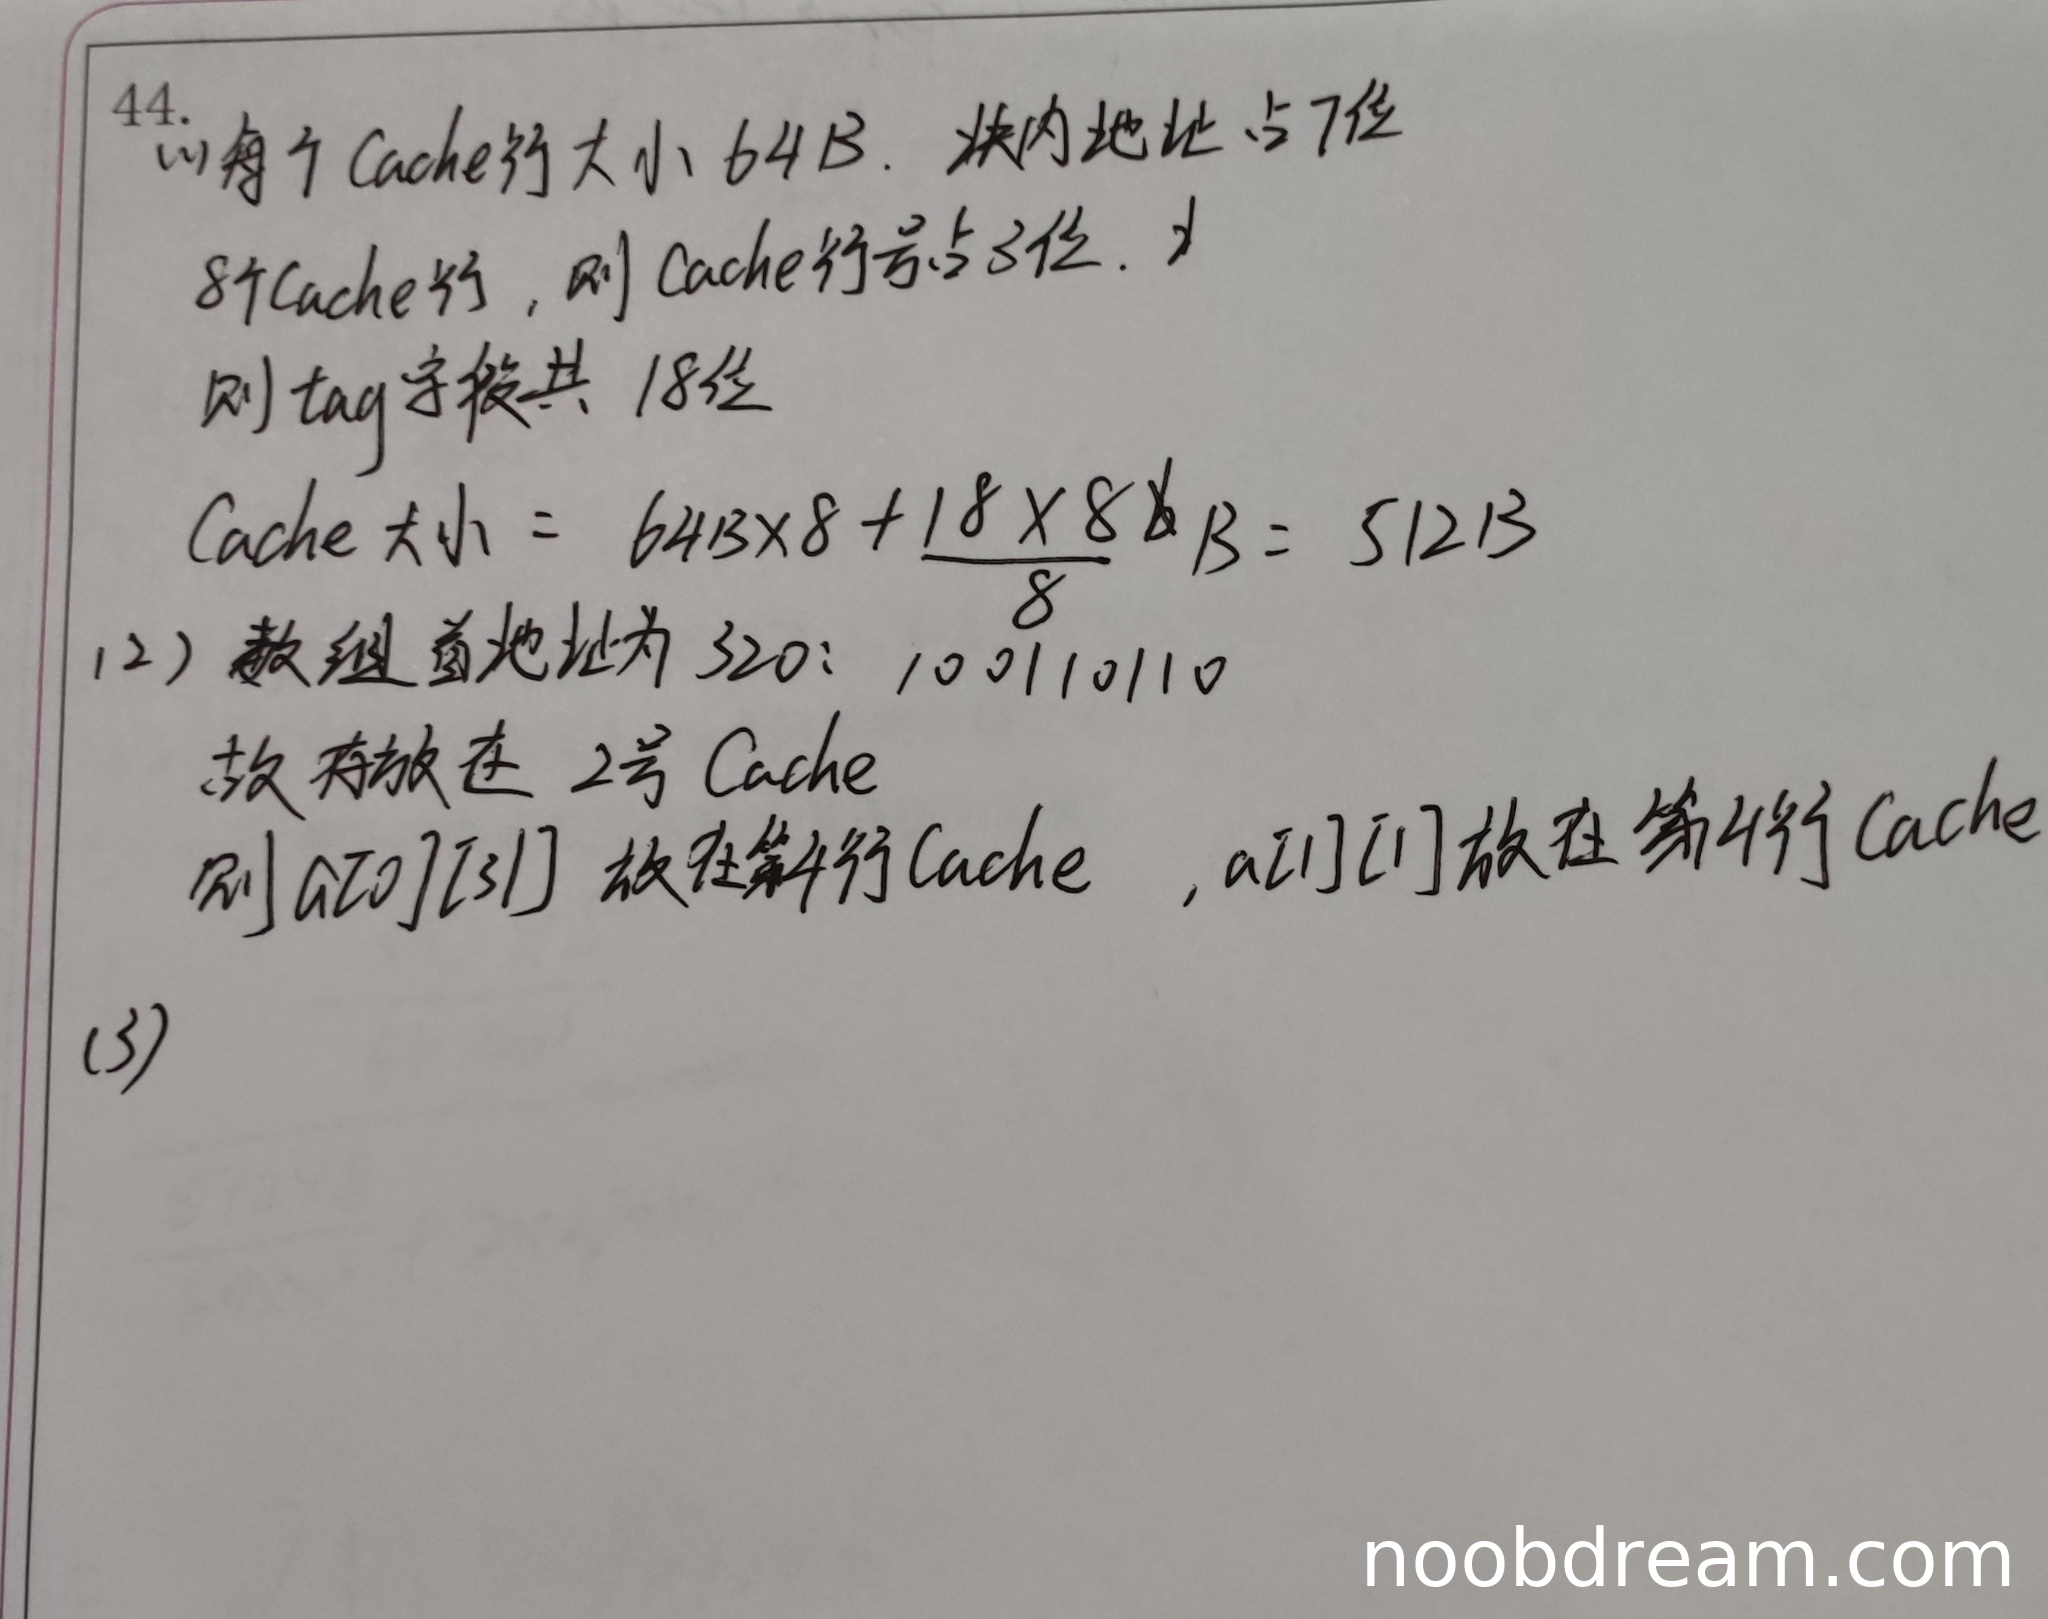 44.
(1) 每个Cache行大小64B. 块内地址占7位
8个Cache行, 则Cache行号占3位.
则tag字段共 18位
Cache大小 = 64B×8 + 18×8/8 B = 512B
(2) 数组首地址为320: 100110110
故存放在 2号 Cache
则a[0][31] 放在第4行Cache , a[1][1]放在第4行Cache
(3)
noobdream.com